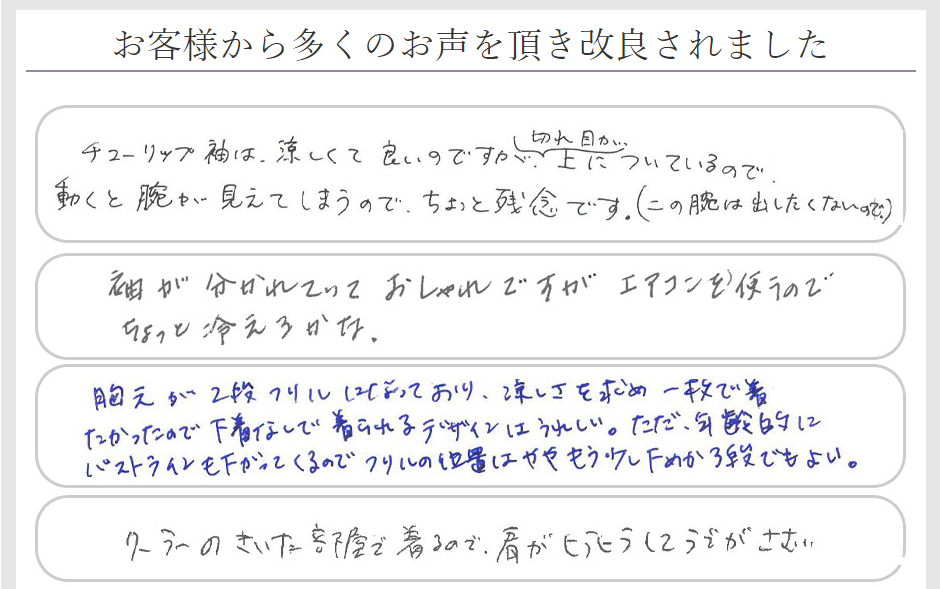 お客様から多くのお声を頂き改良されました
チューリップ袖は、涼しくて良いのですが、切れ目が上についているので、
動くと腕が見えてしまうので、ちょっと残念です。(二の腕は出したくないので)
袖が分かれていておしゃれですがエアコンを使うので
ちょっと冷えるかな。
胸元が2段フリルになっており、涼しさを求め一枚で着
たかったので下着なしで着られるデザインはうれしい。ただ、年齢的に
バストラインも下がってくるのでフリルの位置はややもう少し下めか3段でもよい。
クーラーのきいた部屋で着るので、肩がヒラヒラしてうでがさむい